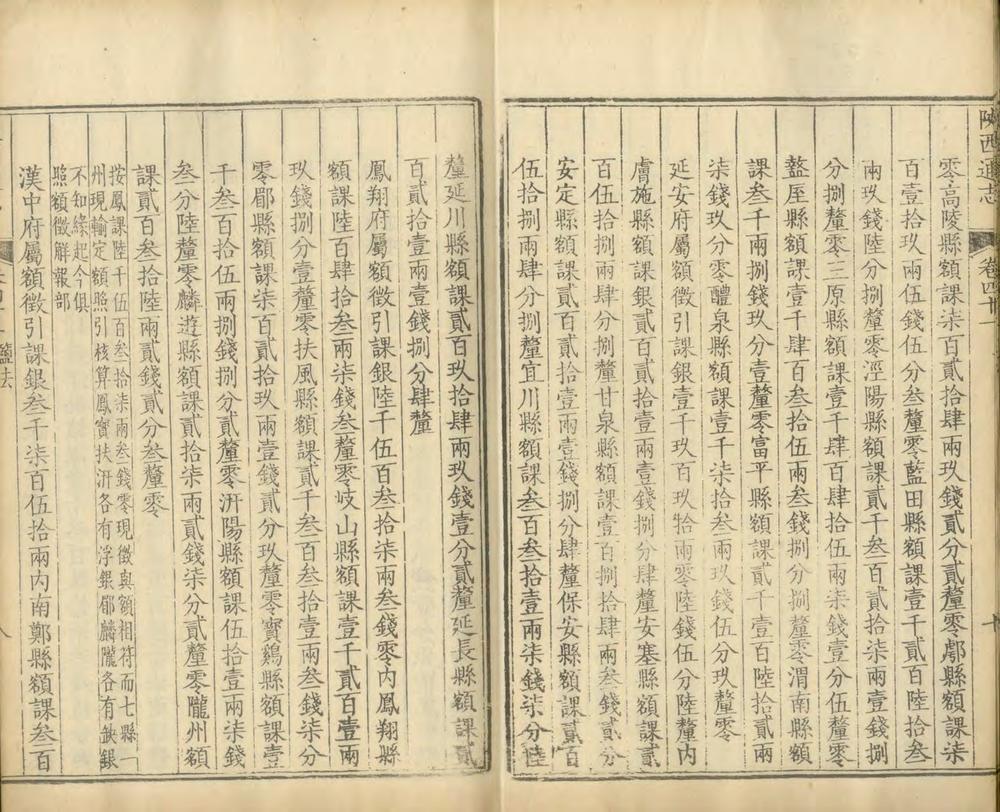 陝西通志
卷四十一
零高陵縣額課柒百貳拾肆兩玖錢貳分貳釐零鄠縣額課柒
百壹拾玖兩伍錢伍分叁釐零藍田縣額課壹千貳百陸拾叁
兩玖錢陸分捌釐零涇陽縣額課貳千叁百貳拾柒兩壹錢捌
分捌釐零三原縣額課壹千肆百肆拾伍兩柒錢壹分伍釐零
盩厔縣額課壹千肆百叁拾伍兩叁錢捌分捌釐零渭南縣額
課叁千兩捌錢玖分壹釐零富平縣額課貳千壹百陸拾貳兩
柒錢玖分零醴泉縣額課壹千柒拾叁兩玖錢伍分玖釐零
延安府屬額徵引課銀壹千玖百玖拾兩零陸錢伍分陸釐內
膚施縣額課銀貳百貳拾壹兩壹錢捌分肆釐安塞縣額課貳
百伍拾捌兩肆分捌釐甘泉縣額課壹百捌拾肆兩叁錢貳分
安定縣額課貳百貳拾壹兩壹錢捌分肆釐保安縣額課貳百
伍拾捌兩肆分捌釐宜川縣額課叁百叁拾壹兩柒錢柒分陸
釐延川縣額課貳百玖拾肆兩玖錢壹分貳釐延長縣額課貳
百貳拾壹兩壹錢捌分肆釐
鳳翔府屬額徵引課銀陸千伍百叁拾柒兩叁錢零內鳳翔縣
額課陸百肆拾叁兩柒錢叁釐零岐山縣額課壹千貳百壹兩
玖錢捌分壹釐零扶風縣額課貳千叁百叁拾壹兩叁錢柒分
零郿縣額課柒百貳拾玖兩壹錢貳分玖釐零寳鷄縣額課壹
千叁百拾伍兩捌錢捌分貳釐零汧陽縣額課伍拾壹兩柒錢
叁分陸釐零麟遊縣額課貳拾柒兩貳錢柒分貳釐零隴州額
課貳百叁拾陸兩貳錢貳分叁釐零
按鳳課陸千伍百叁拾柒兩叁錢零現徵與額相符而七縣一
州現輸定額照引核算鳳寳扶汧各有浮銀郿麟隴各有缺銀
不知緣起今俱
照額徵解報部
漢中府屬額徵引課銀叁千柒百伍拾兩內南鄭縣額課叁百
鹽法
八